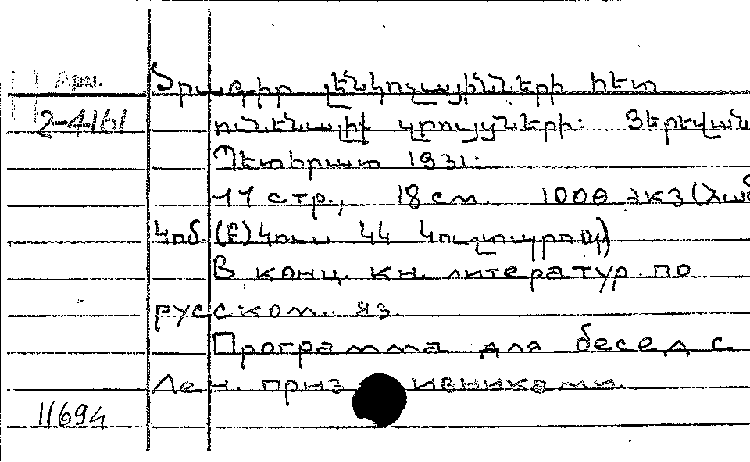 Арм.
2-4161
Ծրագիր լենկոչայինների հետ
ունենալիք զրույցների: Յերեվան
Պետհրատ 1931:
44 стр., 18 см. 1000 экз
Կոմ. (բ) Կուս ԿԿ
В конц. кн. литератур. по
русском. яз.
Программа для бесед с
Лен. приз ивниками.
11694